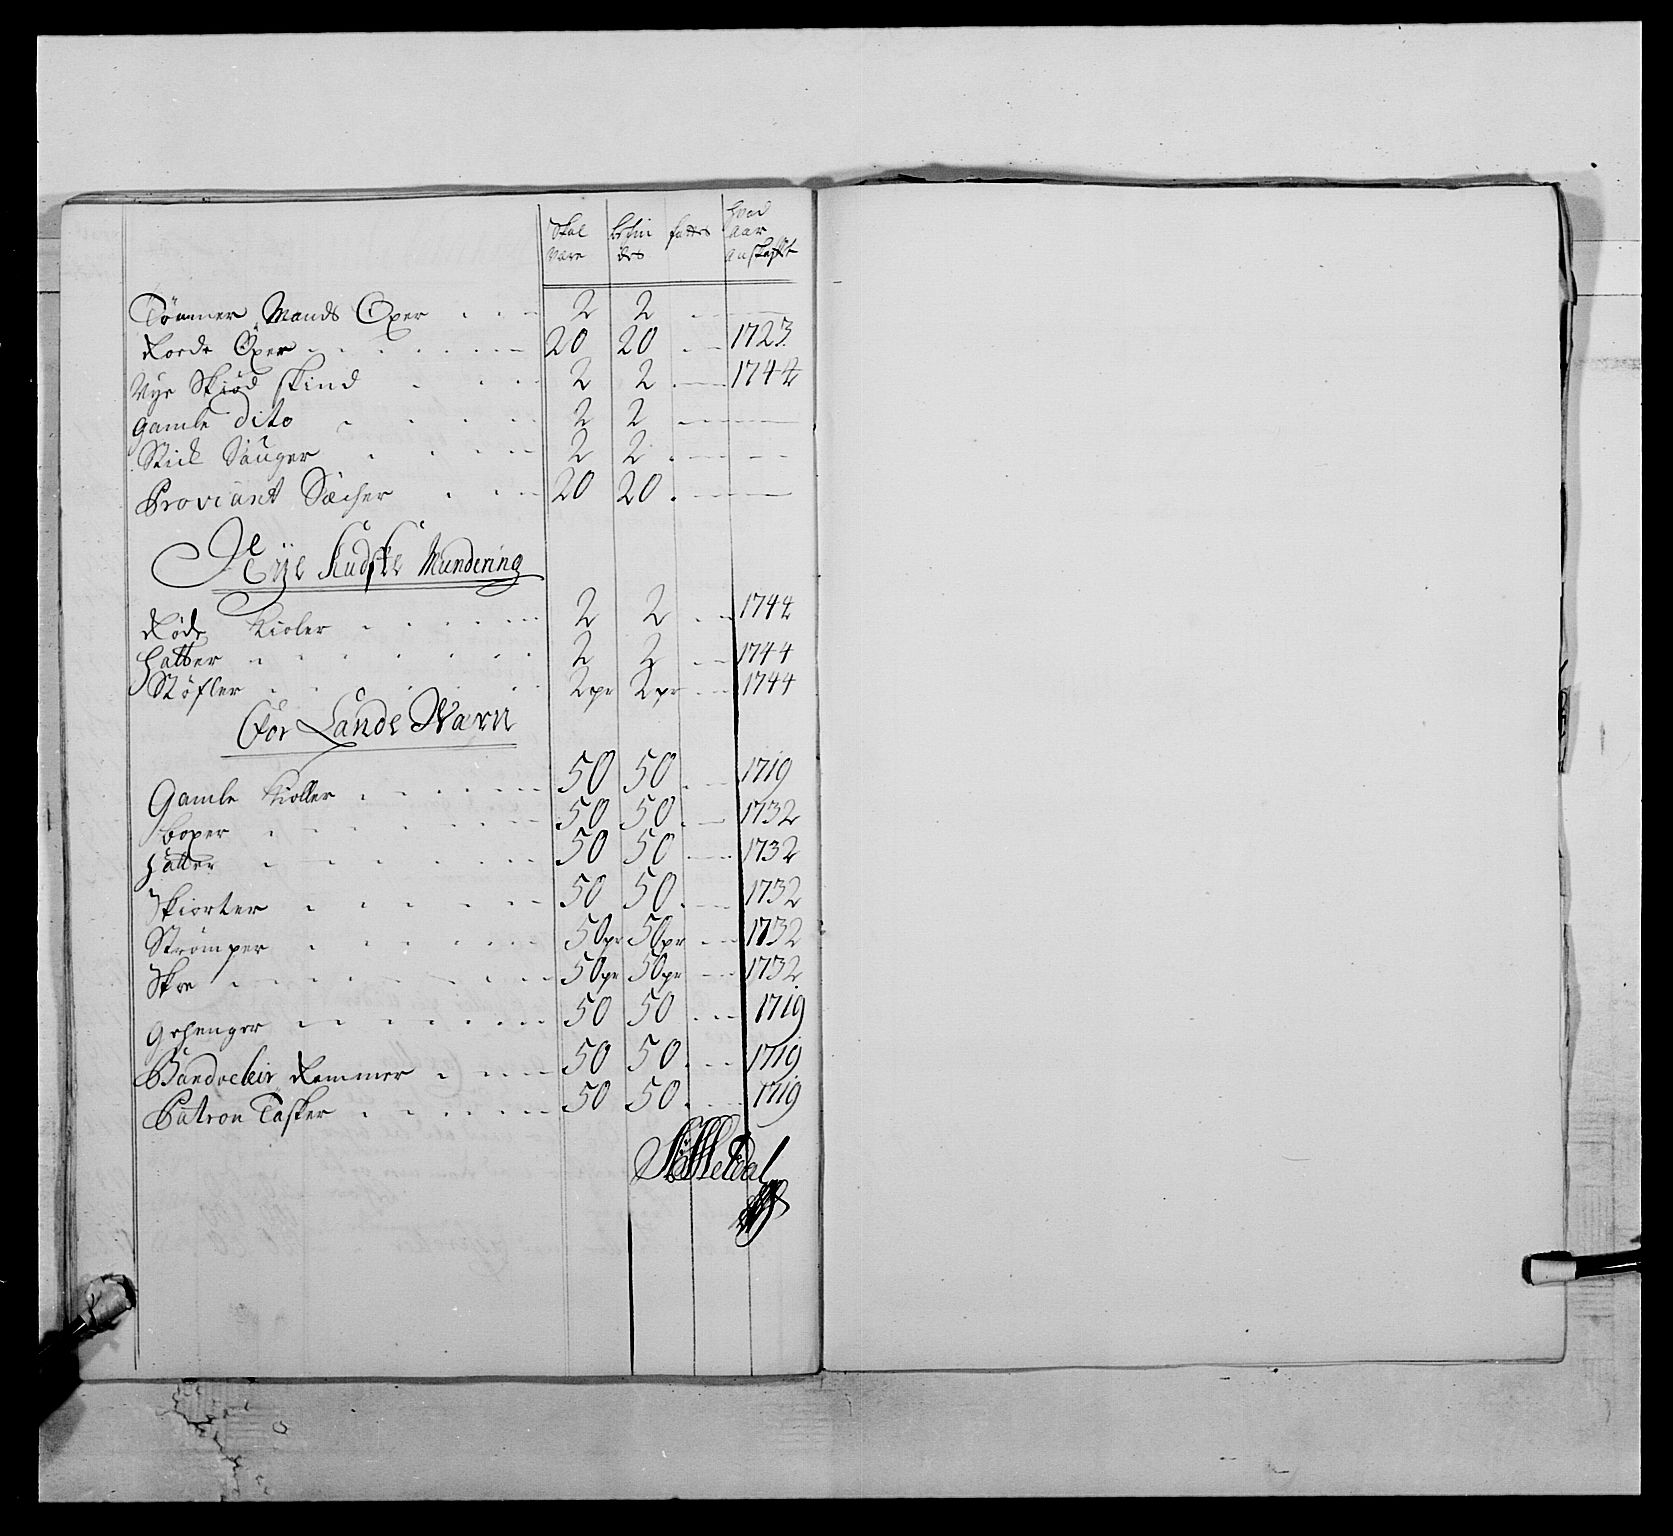 Skal være | befindes | fattes | hvad Aar anskaft
Tömmer Mands Oxer . . . 2 2 . — —
Korde Öxer . . . 20 20 . — 1723.
Nye Skiød skind . . . 2 2 . — 1744
gamle dito . . . 2 2 — —
Stick Sauger . . . 2 2 . — —
Proviant Sæcher . . . 20 20 . — —
Nÿe Kudske Mundering
Røde Kioler . . . 2 2 . — 1744
hatter . . . 2 2 . — 1744
Støfler . . . 2pr 2pr . — 1744
For Lande Værn
Gamle Kioller . . . 50 50 . — 1719
boxer . . . 50 50 . — 1732
hatter . . . 50 50 . — 1732
Skiorter . . . 50 50 . — 1732
Strømper . . . 50pr 50pr . — 1732
Skoe . . . 50pr 50pr — 1732
gehenger . . . 50 50 . — 1719
Bandoeleir Remmer . . . 50 50 . — 1719
Patron Tasker . . . 50 50 . — 1719